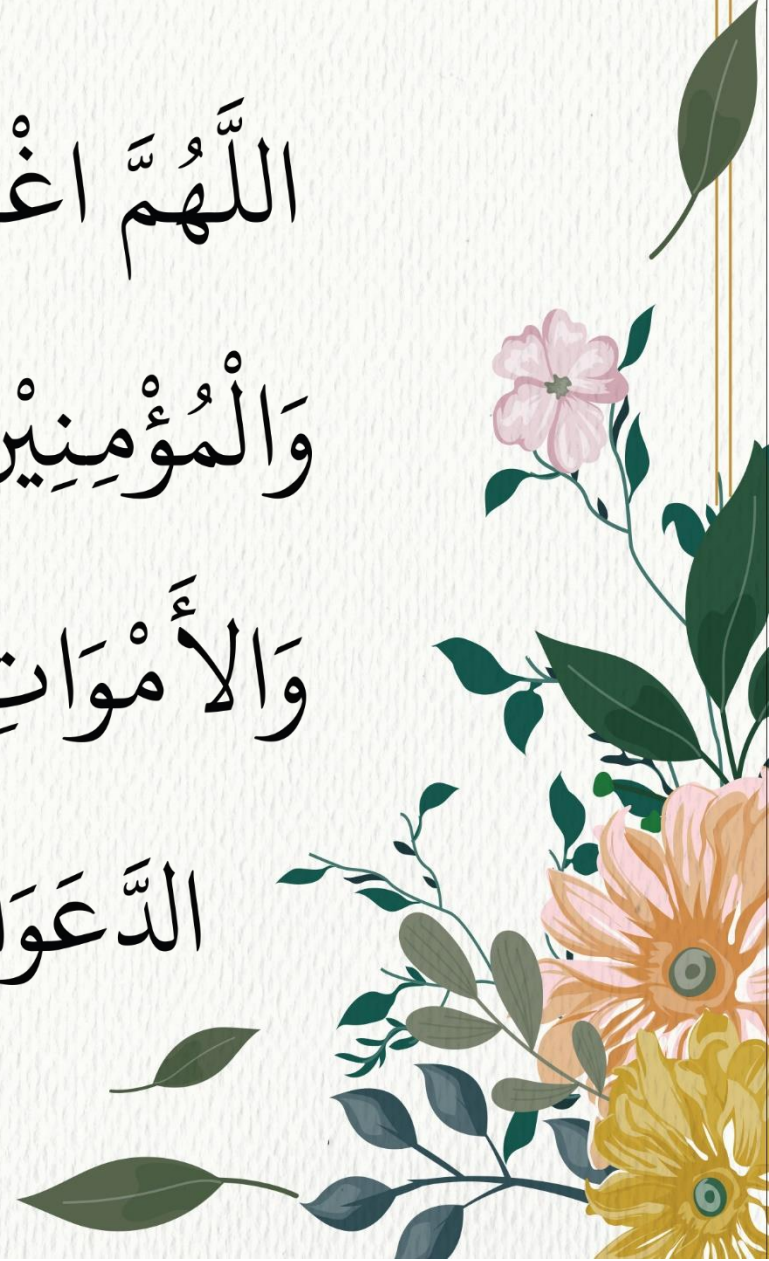 اللَّهُمَّ اغْ
وَالْمُؤْمِنِيْن
وَالأَمْوَاتِ
الدَّعَوَا